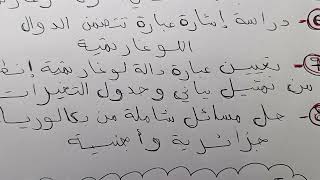 6- دراسة إشارة عبارة تتضمن الدوال
اللوغاريتمية
7- تعيين عبارة دالة لوغاريتمية إنطلا
من تمثيل بياني وجدول التغيرات
8- حل مسائل شاملة من بكالوريا
جزائرية وأجنبية